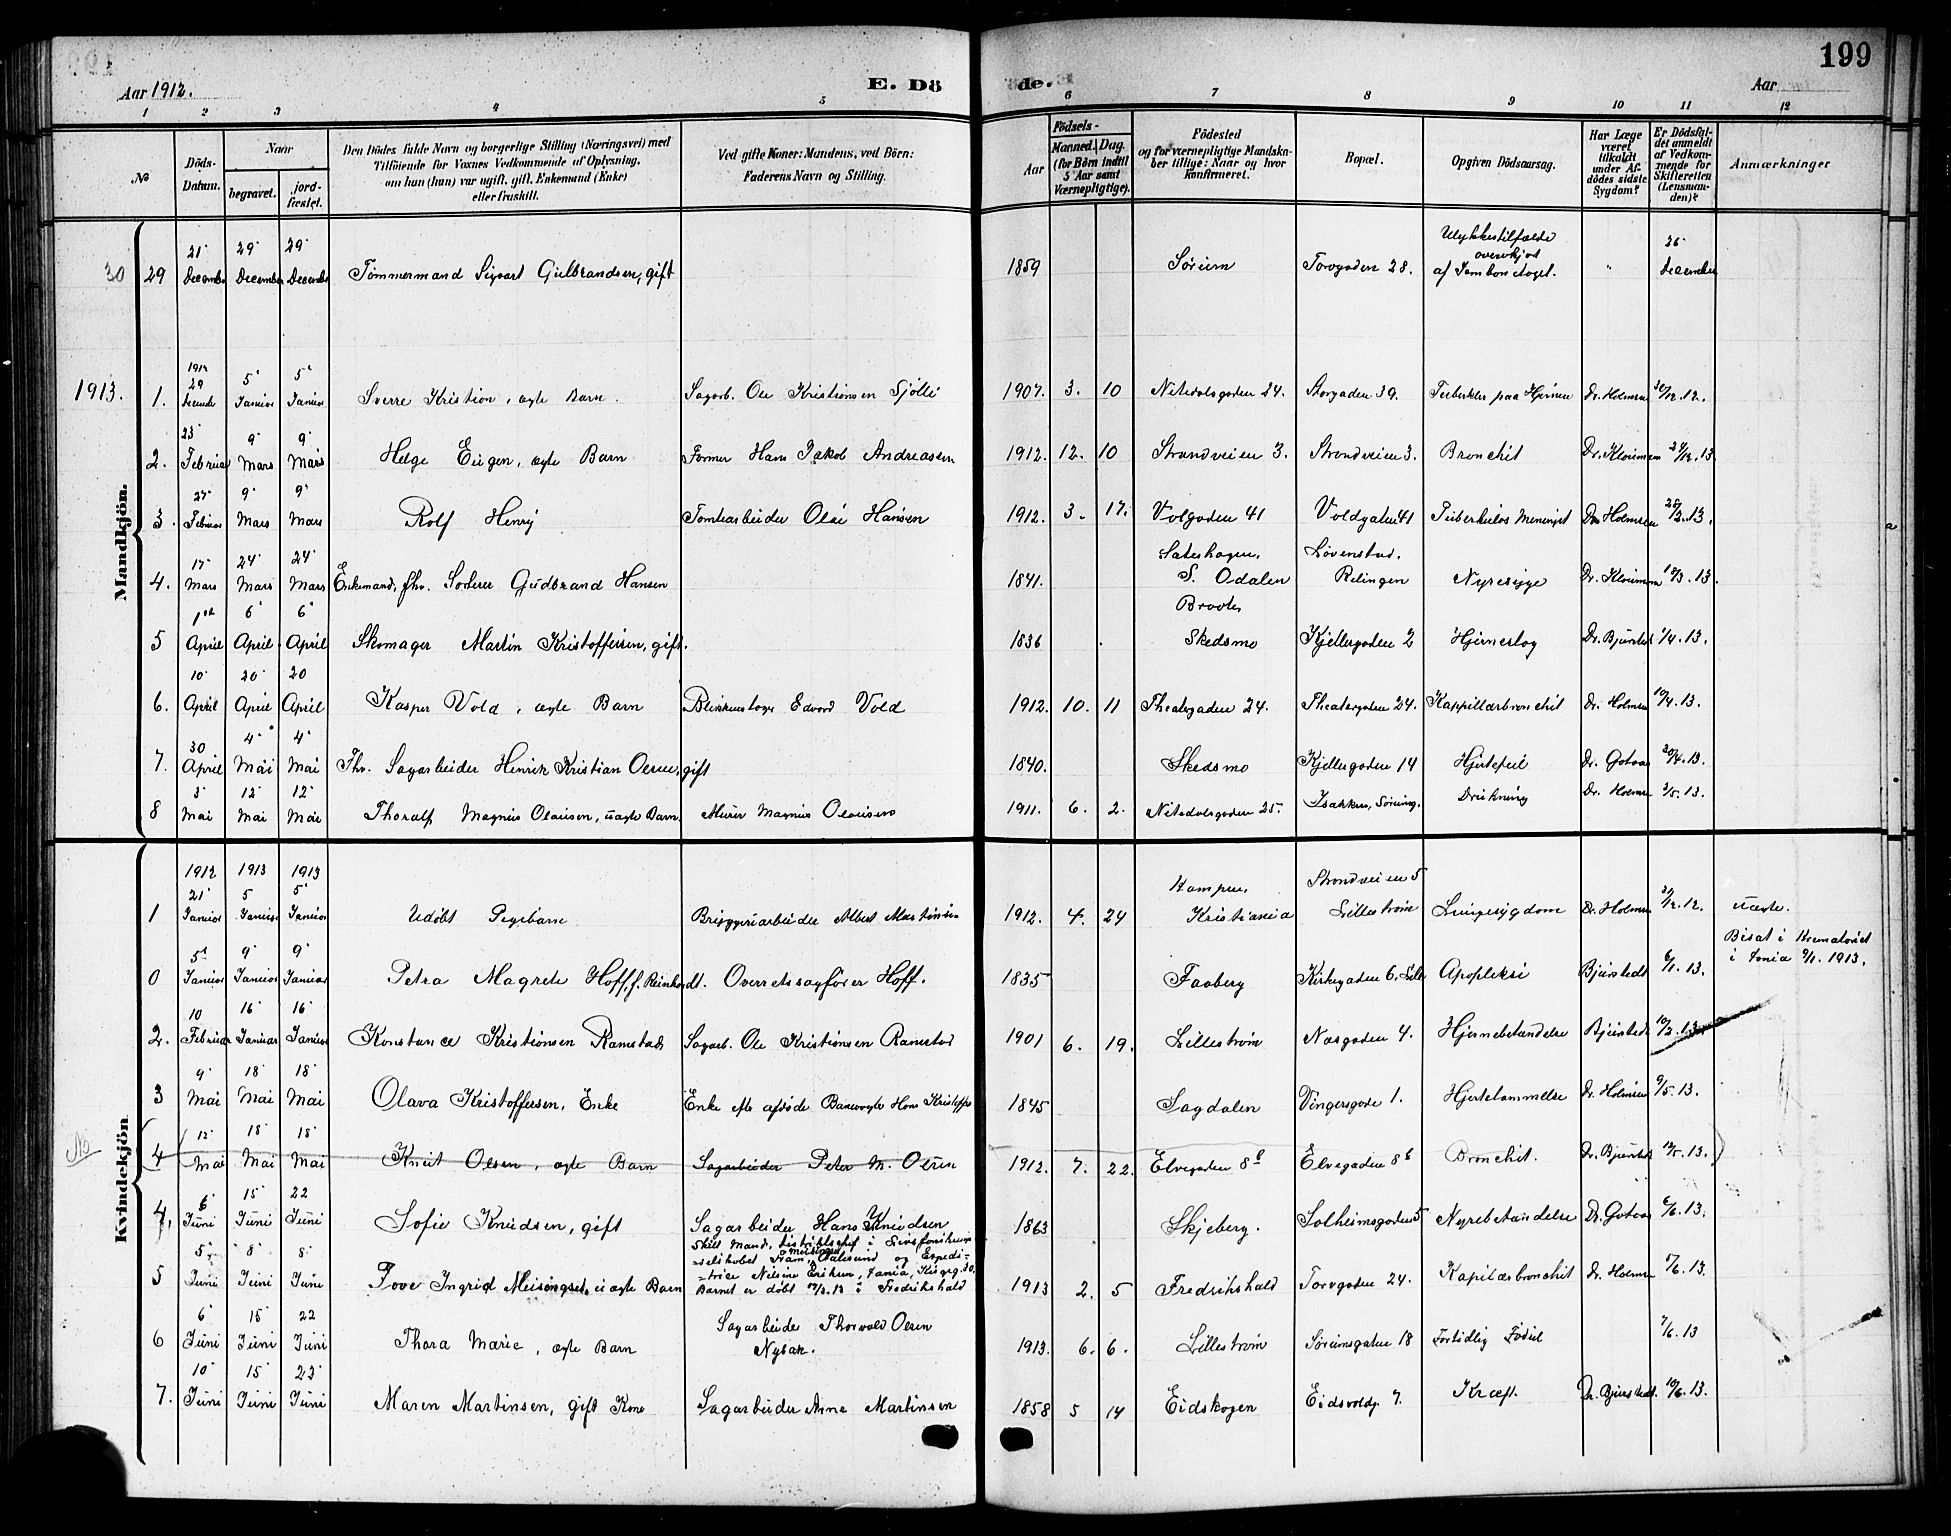 199
Aar 1912.
E. Dö
de.
Aar
1 2 3 4 5 6 7 8 9 10 11 12
№
Döds-Datum.
Naar
begravet.
jord-fæstet.
Den Dödes fulde Navn og borgerlige Stilling (Næringsvei) med
Tilföiende for Voxnes Vedkommende af Oplysning,
om han (hun) var ugift, gift, Enkemand (Enke)
eller fraskilt.
Ved gifte Koner: Mandens, ved Börn:
Faderens Navn og Stilling.
Födsels-
Aar
Maaned. Dag.
(for Börn indtil
5 Aar samt
Værnepligtige).
Födested
og for værnepligtige Mandska-
ber tillige: Naar og hvor
konfirmeret.
Bopæl.
Opgiven Dödsaarsag.
Har Læge
været
tilkaldt
under Af-
dödes sidste
Sygdom?
Er Dödsfal-
det anmeldt
af Vedkom-
mende for
Skifteretten
(Lensman-
den)?
Anmærkninger
Mandkjön.
30 29 21' December 29' December 29' December Tömmermand Sigvart Gulbrandsen, gift 1859 Sørum Torvgaden 28. Ulykkestilfælde overkjørt af Jernbanetoget. " 26 December
1913.
1. 29 5' Januar 5' Januar Sverre Kristian, ægte Barn. Sagarb. Ole Kristiansen Sjölli 1907. 3. 10 Nitedalsgaden 24. Storgaden 39. Tuberkler paa Hjernen Dr. Holmsen 30/12.12.
2. 23' Februar 9' Mars 9' Mars Helge Eugen, ægte Barn Former Hans Jakob Andreasen 1912. 12. 10 Strandveien 3. Strandveien 3. Bronchit Dr. Kloumann
3. 27' Februar 9' Mars 9' Mars Rolf Henry Tomtearbeider Olai Hansen 1912. 3. 17. Volgaden 41 Voldgaten 41 Tuberkuløs Meningit Dr. Holmsen 28/2.13.
4. 17' Mars 24' Mars 24' Mars Enkemand, fhv. Gudbrand Hansen 1841. S. Odalen Løvenstad, Relingen Nyresyge Dr. Kloumann 18/3.13.
5 1ste April 6' April 6' April Skomager Martin Kristoffersen, gift. 1836 Braate, Skedsmo Kjellergaden 2 Hjerneslag Dr. Bjørstedt 1/4.13.
6. 10' April 20' April 20 April Kasper Vold, ægte Barn Blikkenslager Edvard Vold 1912. 10. 11 Theatergaden 24. Theatergaden 24. Kappillærbronchit Dr. Holmsen 10/4.13.
7. 30 April 4' Mai 4' Mai Fhv. Sagarbeider Henrik Kristian Olsen, gift 1840. Skedsmo Kjellergaden 14 Hjertefeil Dr. Gotaas 30/4.13.
8 3' Mai 12' Mai 12' Mai Thoralf Magnus Olausen, uægte Barn Murer Magnus Olausen 1911. 6. 2. Nitedalsgaden 25. Isakken, Sørum. Drukning Dr. Holmsen 3/5.13.
Kvindekjön
1 1912 21' Januar 1913 5 Januar 1913 5' Januar Udöbt Pigebarn Bryggeriarbeider Albert Martinsen 1912. 4. 24 Kampen, Kristiania Strandveien 5 Lillestrøm Lungesygdom Dr. Holmsen uægte.
0 5' Januar 9' Januar 9' Januar Petra Magrete Hoff, f. Reinhardt. Overretssagfører Hoff. 1835 Faaberg Kirkegaden 6. Lille Apopleksi Bjørstedt 6/1.13. Bisat i Krematoriet i Xania 9/1.1913.
2. 10 Februar 16' Januar 16' Januar Konstance Kristiansen Ramstad Sagarb. Ole Kristiansen Ramstad 1901 6. 19. Lillestrøm Næsgaden 4. Hjernebetændelse Bjørstedt 10/2.13.
3 9' Mai 18' Mai 18' Mai Olava Kristoffersen, Enke Enke efter afdöde Banevogter Hans Kristoffs 1845 Sagdalen Vingersgade 1. Hjertelammelse Dr. Holmsen 9/5.13.
No (4 12' Mai 18' Mai 18' Mai Knut Olsen, ægte Barn Sagarbeider Peter M. Olsen 1912. 7. 22. Elvegaden 8 b Elvegaden 8 b Bronchit. Dr. Bjørstedt 12/5.13.)
4, 6' Juni 15' Juni 22 Juni Sofie Knudsen, gift Sagarbeider Hans Knudsen 1863 Skjeberg. Solheimsgaden 5 Nyrebetændelse Dr. Gotaas 6/6.13.
5 5' Juni 8' Juni 8' Juni Tove Ingrid Meisingset, uægte Barn Skilt Mand, distriktschef i Livsforsikrings-selskabet Fram, Aalesund og Expeditrice Nelsine Eriksen, Xania, 30. Barnet er döbt i Fredrikshald 1913 2. 5 Fredrikshald Torvgaden 24. Kapilærbronchit Dr. Holmsen 5/6.13.
6 6' Juni 15' Juni 22 Juni Thora Marie, ægte Barn Sagarbeider Thorvald Olsen Nybak. 1913. 6. 6. Lillestrøm Sørumsgaten 18 Fortidlig Födsel 7/6.13
7. 10' Juni 15' Juni 23' Juni Maren Martinsen, gift Kone Sagarbeider Arne Martinsen 1858 5 14 Eidskogen Eidsvoldg. 7. Kræft. Dr. Bjørstedt 10/6.13.